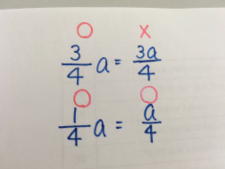 ○ ×
3/4 a = 3a/4
○ ○
1/4 a = a/4